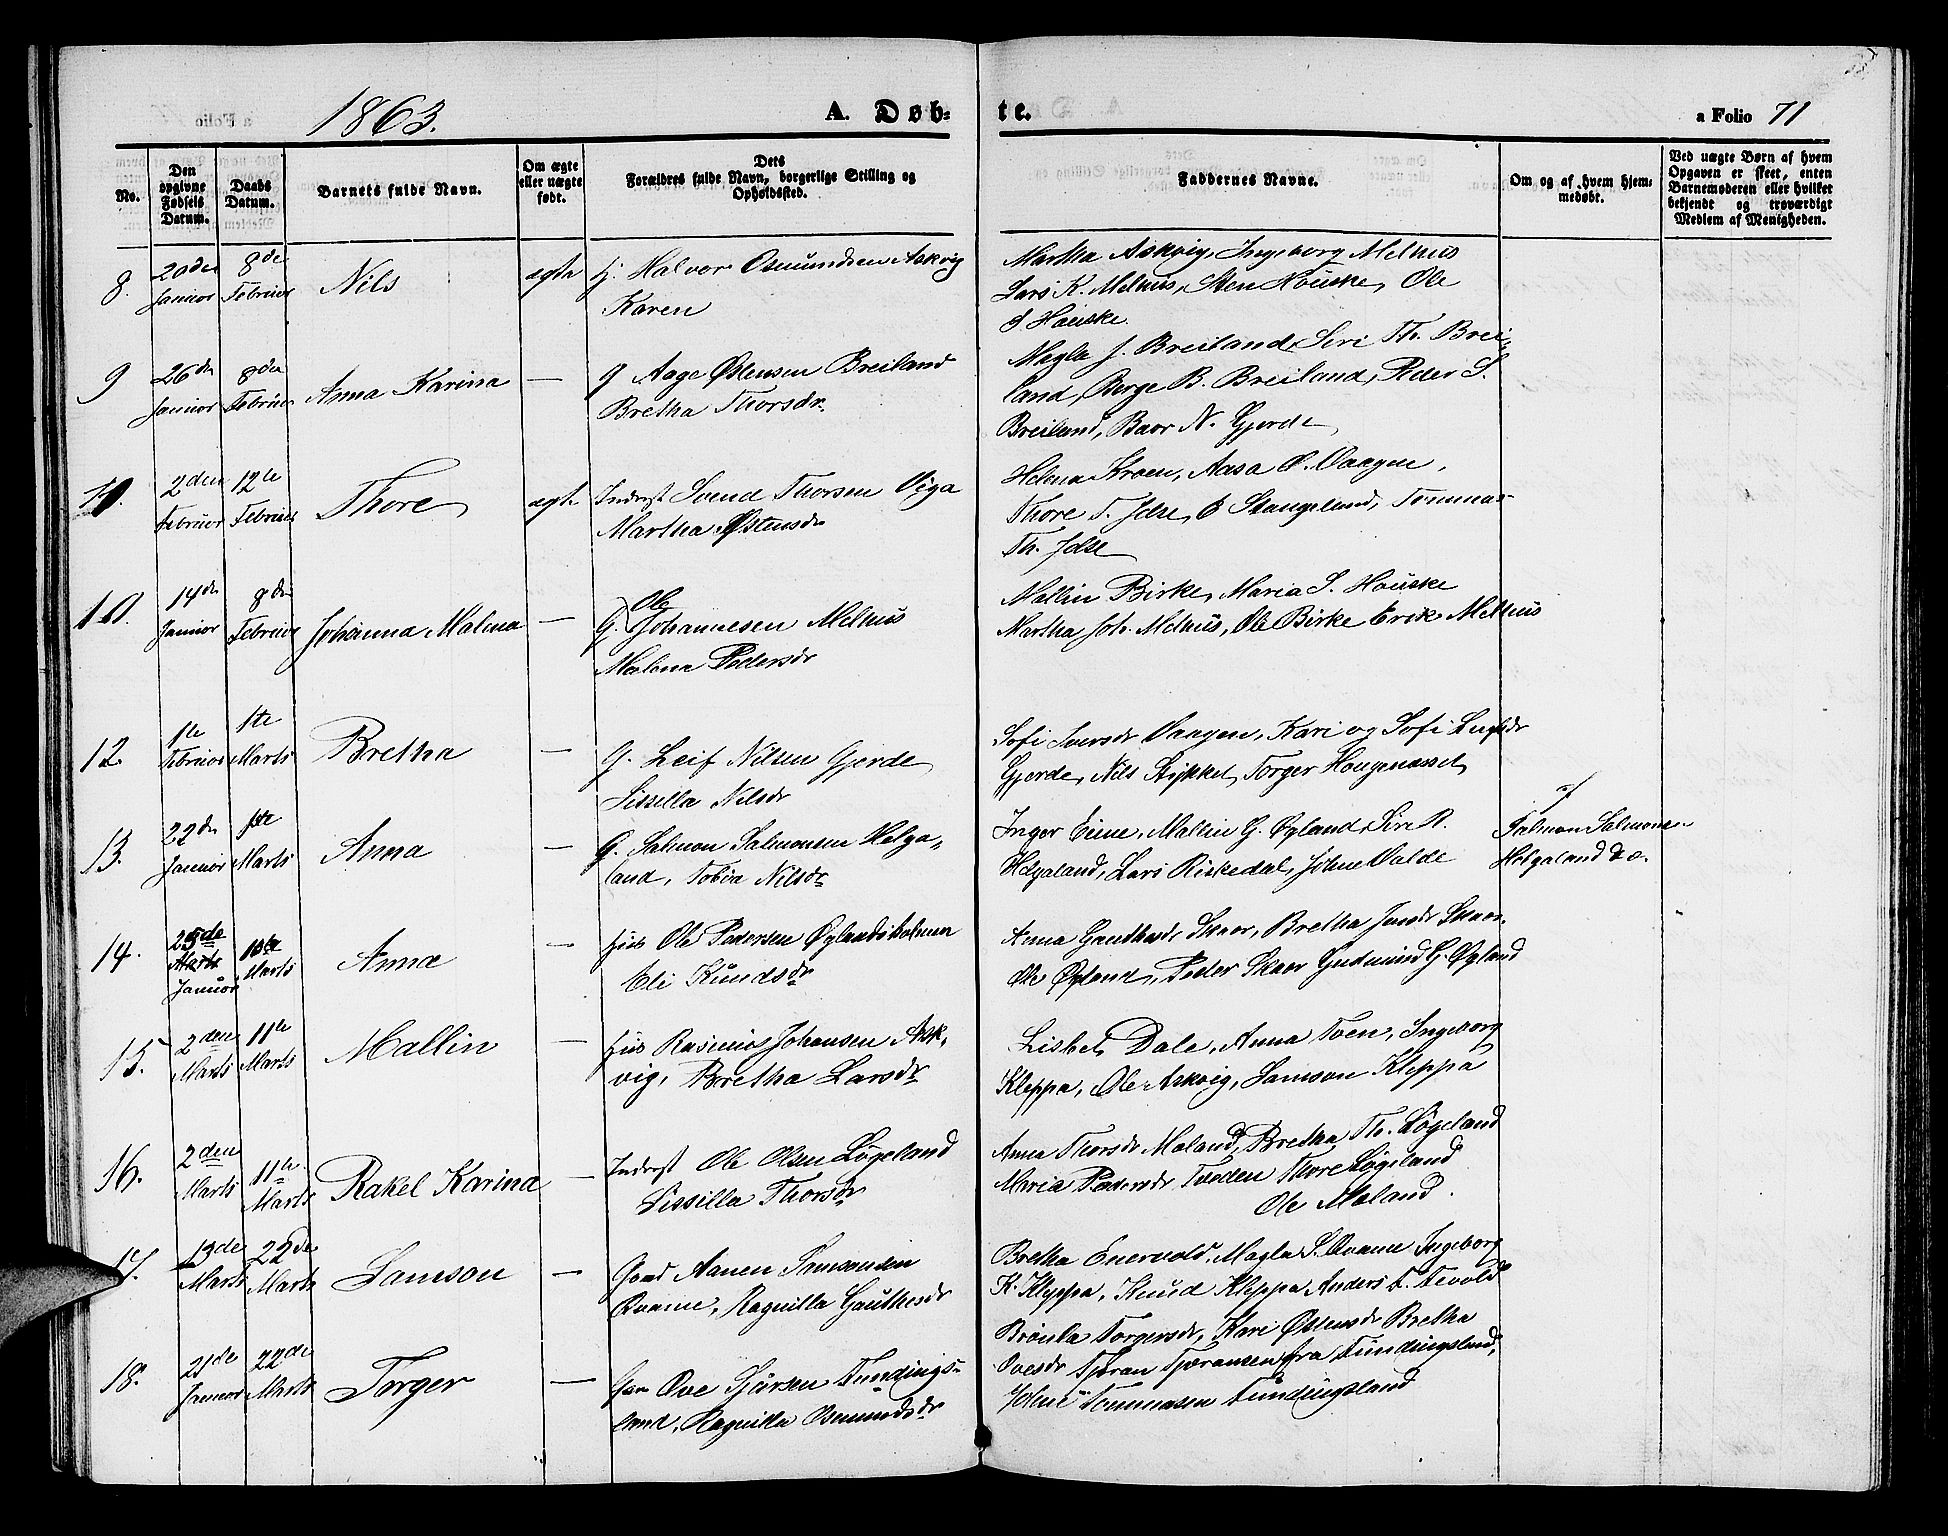 1863.
A. Døb-
te.
a Folio 71
No.
Den opgivne Fødsels Datum.
Daabs Datum.
Barnets fulde Navn.
Om ægte eller uægte født.
Dets Forældres fulde Navn, borgerlige Stilling og Opholdssted.
Faddernes Navne.
Om og af hvem hjem-
medøbt.
Ved uægte Børn af hvem
Opgaven er skeet, enten
Barnemoderen eller hvilket
bekjendt og troværdigt
Medlem af Menigheden.
8. 20den Januar 8de Februar Nils ægte
Halvor Osmundsen Askvig
Karen
Martha Askvig, Ingeborg Melhus
Lars K. Melhus, Sten Houske, Ole
Houske.
9 26de Januar 8de Februar Anna Karina —
g Aage Østensen Breiland
Bretha Thorsdr.
Magla J. Breiland, Siri Th. Brei-
land, Børge B. Breiland, Peder S.
Breiland, Baar N. Gjerde
10. 2den Februar 12te Februar Thore ægte
Inderst Svend Thorsen Viga
Martha Østensdr
Helena Kroen, Aasa O. Vaagen,
Thore T. Jelse, Stangeland, Tommas
Th. Jelse
14de Januar 8de Februar Johanna Malena —
G. Ole Johannesen Melhus
Malena Pedersdr
Mallin Birke, Maria S. Houske
Martha Joh. Melhus, Ole Birke Erik Melhus
12. 1te Februar 1te Marts Bretha —
G. Leif Nilsen Gjerde
Sissilla Nilsdr
Sofi Iversdr Vaagen, Kari og Sofi
Gjerde, Nils Stykket, Torger Hougenæsset
13. 22de Januar 1te Marts Anna —
G. Salmon Salmonsen Helga-
land, Tobia Nilsdr
Inger Eime, Mallin G. Øyland Siri R.
Helgaland, Lars Riskedal, Johne Valde
af
Salmon Salmons-
Helgaland d.o.
14. 25de Marts Januar 1te Marts Anna —
Huus Ole Pedersen Øylandsholmen
Eli Knudsdr
Anna Skaar, Bretha Skaar
Ole Øyland, Peder Skaar Gudmund G. Øyland
15. 2den Marts 11te Marts Mallin —
Huus Rasmus Johansen Ask-
vig, Bretha Larsdr
Lisbet Dale, Anna Toen, Ingeborg
Kleppa, Ole Askvig, Samson Kleppa
16. 2den Marts 11te Marts Rakel Karina —
Inderst Ole Olsen Løgeland
Sissilla Thorsdr
Anna Thorsdr Moland, Bretha Th. Løgeland
Maria Pedersdr Tveden Thore Løgeland
Ole Moland.
17. 13de Marts 22de Marts Samson —
Gaard Aanen Samsonsen
Qvame, Ragnilla Gauthesdr
Bretha Enervold, Magla S. Qvame Ingeborg
K. Kleppa, Knud Kleppa Anders T. Tevold
18. 21de Januar 22de Marts Torger —
Ove Tjørsen Tundings-
land, Ragnilla Osmundsdr
Brønla Torgersdr, Kari Østensdr Bretha
Ovesdr Tjøran Tjøransen fra Tundingsland,
Johne Tommasen Tundingsland